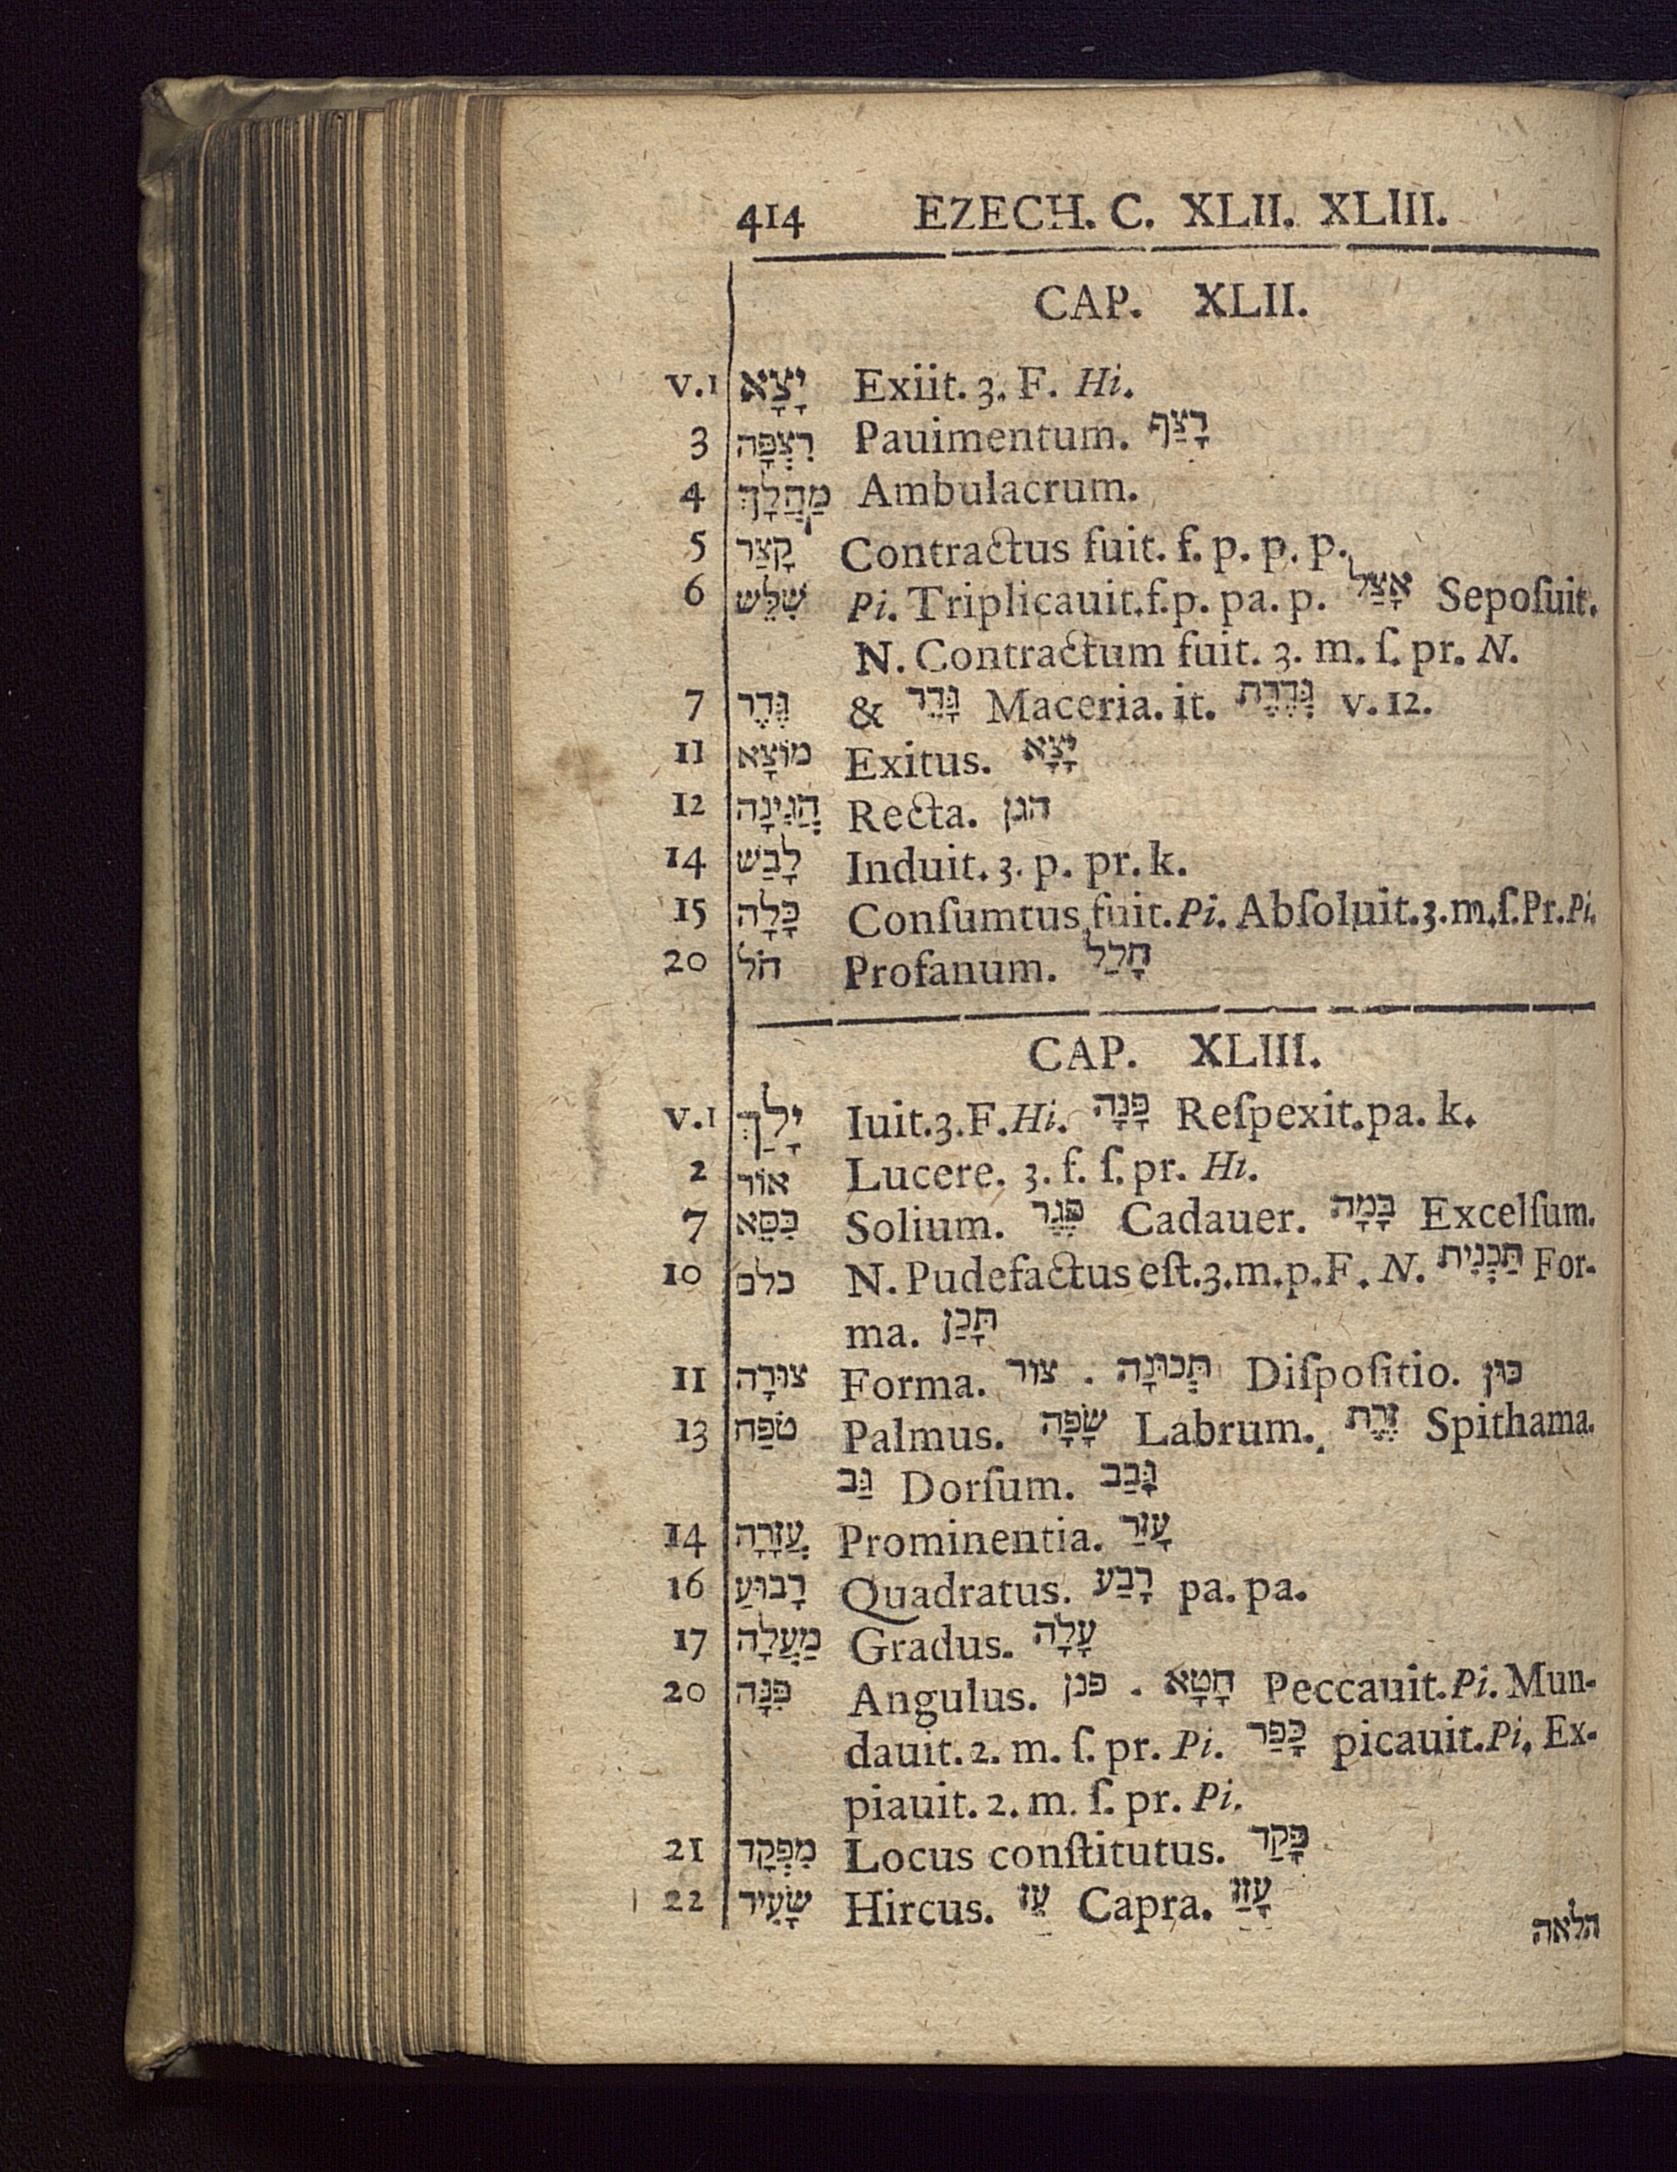 414 EZECH. C. XLII. XLIII.
CAP. XLII.
v.1 יָצָא Exiit. 3. F. Hi.
3 רִצְפָּה Pauimentum. רָצַף
4 מַהֲלָךְ Ambulacrum.
5 קָצַר Contractus fuit. f. p. p. p.
6 שִׁלֵּשׁ Pi. Triplicauit.f.p. pa. p. אָצַל Sepoſuit.
N. Contractum fuit. 3. m. ſ. pr. N.
7 גֶּדֶר & גָּדֵר Maceria. it. גְּדֶרֶת v. 12.
11 מוֹצָא Exitus. יָצָא
12 הֲגִינָה Recta. הגן
14 לָבַשׁ Induit. 3. p. pr. k.
15 כָּלָה Conſumtus fuit. Pi. Abſoluit.3.m.ſ.Pr.Pi.
20 חֹל Profanum. חָלַל
CAP. XLIII.
v.1 יָלַךְ Iuit.3.F.Hi. פָּנָה Reſpexit.pa. k.
2 אוֹר Lucere. 3. f. ſ. pr. Hi.
7 כִּסֵּא Solium. פֶּגֶר Cadauer. בָּמָה Excelſum.
10 כלם N. Pudefactus eſt.3.m.p.F. N. תַּכְנִית For-
ma. תָּכַן
11 צוּרָה Forma. צור . תְּכוּנָה Diſpoſitio. כּוּן
13 טֹפַח Palmus. שָׂפָה Labrum. זֶרֶת Spithama.
גַּב Dorſum. גָּבַב
14 עֲזָרָה Prominentia. עָזַר
16 רָבוּעַ Quadratus. רָבַע pa. pa.
17 מַעֲלָה Gradus. עָלָה
20 פִּנָּה Angulus. פנן . חָטָא Peccauit.Pi. Mun-
dauit. 2. m. ſ. pr. Pi. כָּפַר picauit.Pi. Ex-
piauit. 2. m. ſ. pr. Pi.
21 מִפְקָד Locus conſtitutus. פָּקַד
22 שָׂעִיר Hircus. עֵז Capra. עָזַז
הלאה